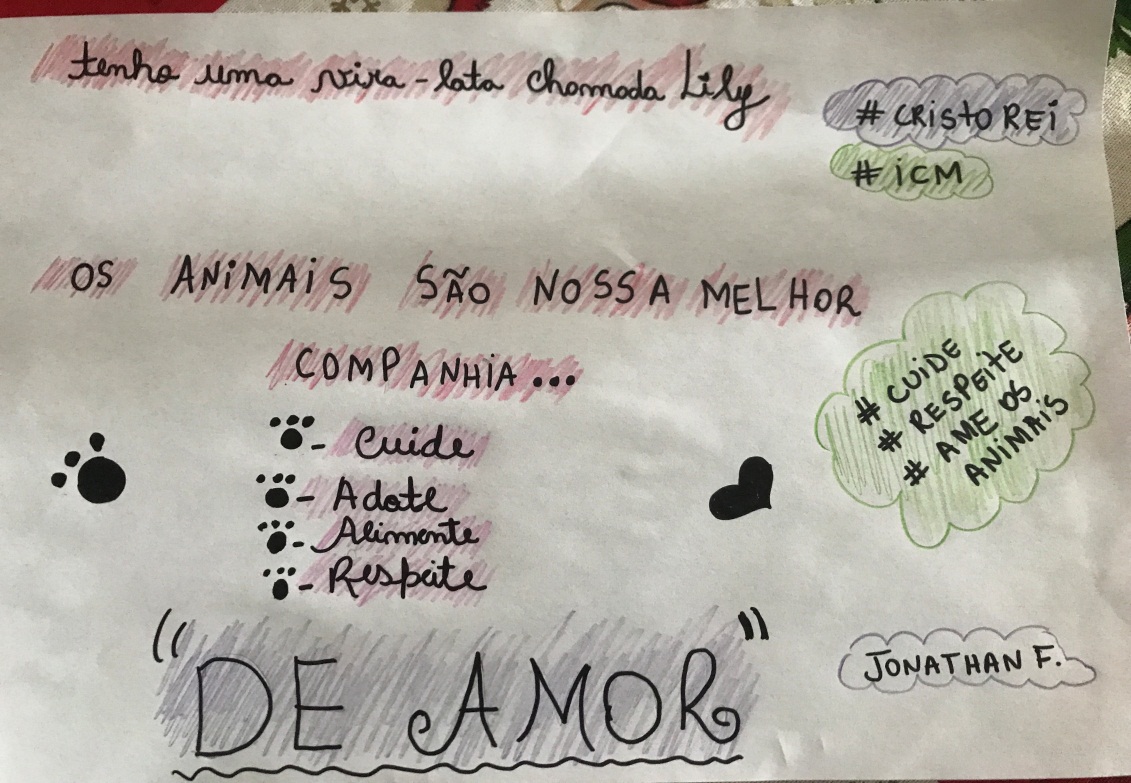 tenho uma vira-lata chamada Lily
# CRISTO REI
# ICM
OS ANIMAIS SÃO NOSSA MELHOR
COMPANHIA...
- Cuide
- Adote
- Alimente
- Respeite
# CUIDE
# RESPEITE
# AME OS
ANIMAIS
"DE AMOR"
JONATHAN F.